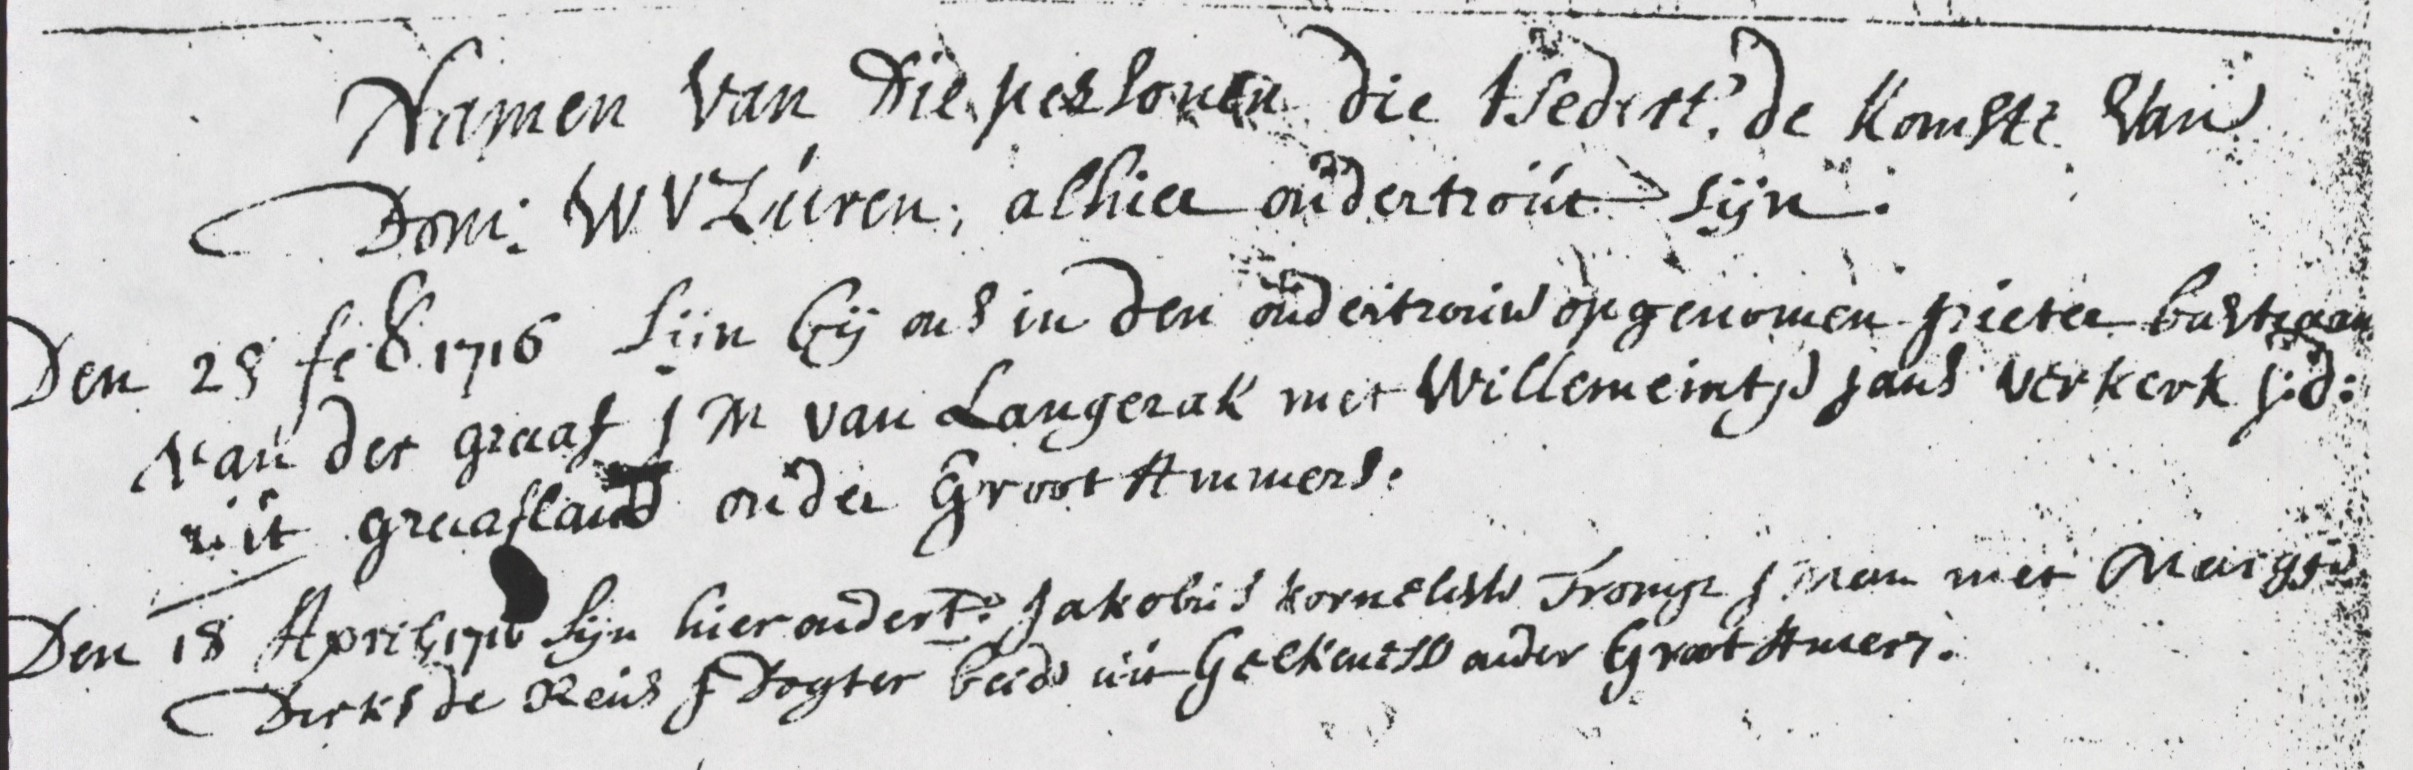 Namen van die persoonen die tsedert de komste van
Dom: W V Zuren, alhier ondertrout sijn.
Den 28 feb 1716 sijn bij ons in den ondertrouw opgenomen pieter bastiaan
van der graaf J M van Langerak met Willemeintje Jans verkerk j:d:
uit graafland onder Groot Ammers.
Den 18 April 1716 sijn hier ondert: Jakobus kornelisse Tromp J Man met
Dirks de Reus J Dogter beide uit onder Groot Amers.